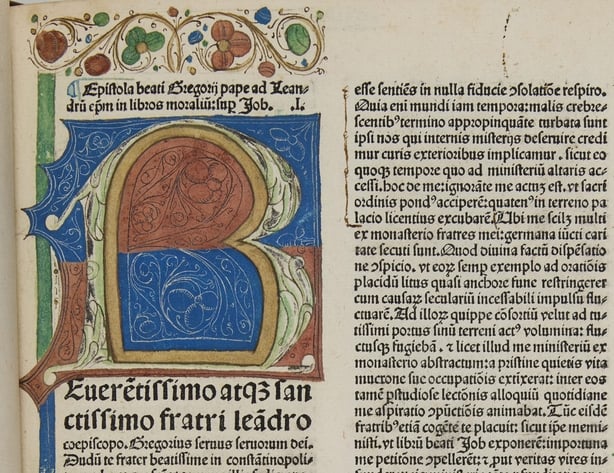 ¶ Epistola beati Gregorij pape ad Lean-
drū ep̄m in libros moraliū: sup̱ Job. .I.
REuerētissimo atq3 san
ctissimo fratri leādro
coepiscopo. Gregorius seruus seruorum dei.
Dudū te frater beatissime in constātinopoli-
esse sentiēs in nulla fiducie ↄsolatiōe respiro.
Quia eni mundi iam tempora: malis crebre-
scentib᷒ termino appropinquāte turbata sunt
ipsi nos qui internis misterijs deseruire credi
mur curis exterioribus implicamur. sicut eo
quoq3 tempore quo ad ministeriū altaris ac-
cessi. hoc de me: ignorāte me actuȝ est. vt sacri
ordinis pond᷒ acciperē: quaten᷒ in terreno pa
lacio licentius excubarē. Ubi me scilȝ multi
ex monasterio fratres mei: germana iūcti cari
tate secuti sunt. Quod diuina factū dispēsatio
ne ↄspicio. vt eoꝝ semp̱ exemplo ad oratiōis
placidū litus quasi anchore fune restringerer
cum causaꝝ seculariū incessabili impulsu flu-
ctuarē. Ad illoꝝ quippe cōsortiū velut ad tu-
tissimi portus sinū terreni act᷒ volumina: flu-
ctusq3 fugiebā. ⁊ licet illud me ministeriū ex
monasterio abstractum: a pristine quietis vita
mucrone sue occupatiōis extixerat: inter eos
tamē ꝑstudiose lectōnis alloquiū quotidiane
me aspiratio ↄpūctiōis animabat. Tūc eisdē
fratrib᷒ etiā cogēte te placuit: sicut ip̄e memi-
nisti. vt librū beati Job exponerē: importuna
me petitōne ↄpellerēt: ⁊ put veritas vires in-